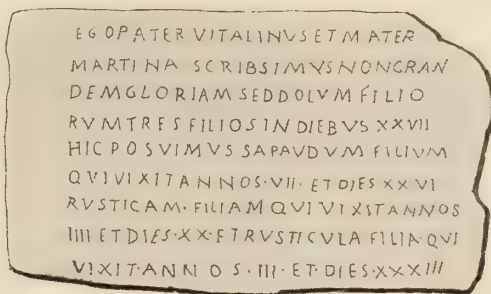 EGOPATERVITALINVSETMATER
MARTINA SCRIBSIMVSNONGRAN
DEMGLORIAMSEDDOLVMFILIO
RVMTRESFILIOSINDIEBVS XXVII
HICPOSVIMVS SAPAVDVM FILIVM
QVIVIXITANNOS·VII· ETDIES XXVI
RVSTICAM·FILIAMQVIVIXITANNOS
IIII ETDIES·XX·ETRVSTICVLA FILIA·QVI
VIXIT·ANNOS·III·ET·DIES·XXXIII